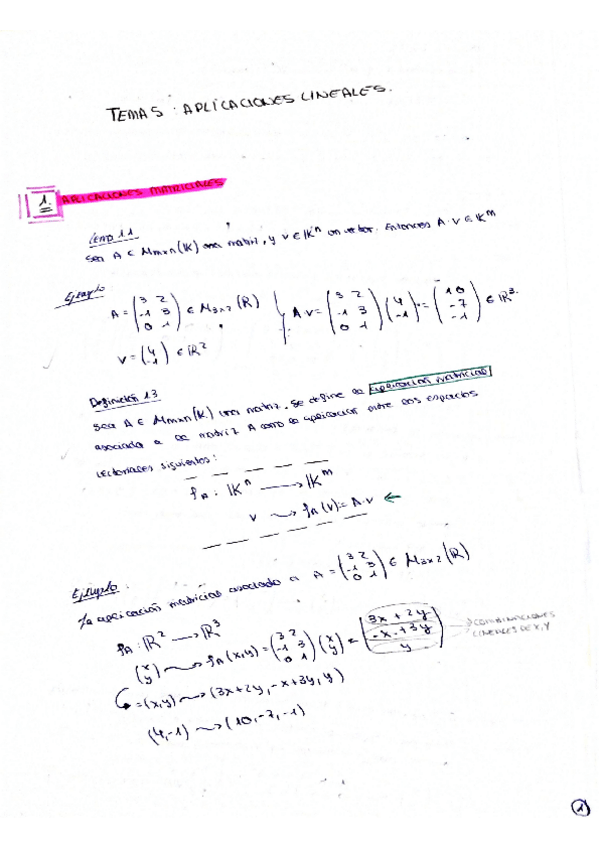 TEMA 5: APLICACIONES LINEALES.
1. APLICACIONES MATRICIALES
Lema 1.1
Sea A ∈ Mmxn(K) una matriz, y v ∈ Kⁿ un vector. Entonces A·v ∈ Kᵐ
Ejemplo
A = (3 2; -1 3; 0 1) ∈ M3x2(R)
v = (4; -1) ∈ R²
A·v = (3 2; -1 3; 0 1)(4; -1) = (10; -7; -1) ∈ R³.
Definición 1.3
Sea A ∈ Mmxn(K) una matriz. Se define la aplicación matricial
asociada a la matriz A como la aplicación entre los espacios
vectoriales siguientes:
fA: Kⁿ → Kᵐ
v ⇝ fA(v) = A·v ←
Ejemplo:
La aplicación matricial asociada a A = (3 2; -1 3; 0 1) ∈ M3x2(R)
fA: R² → R³
(x; y) ⇝ fA(x,y) = (3 2; -1 3; 0 1)(x; y) = (3x + 2y; -x + 3y; y) → COMBINACIONES
LINEALES DE X, Y
= (x,y) ⇝ (3x+2y, -x+3y, y)
(4,-1) ⇝ (10,-7,-1)
1